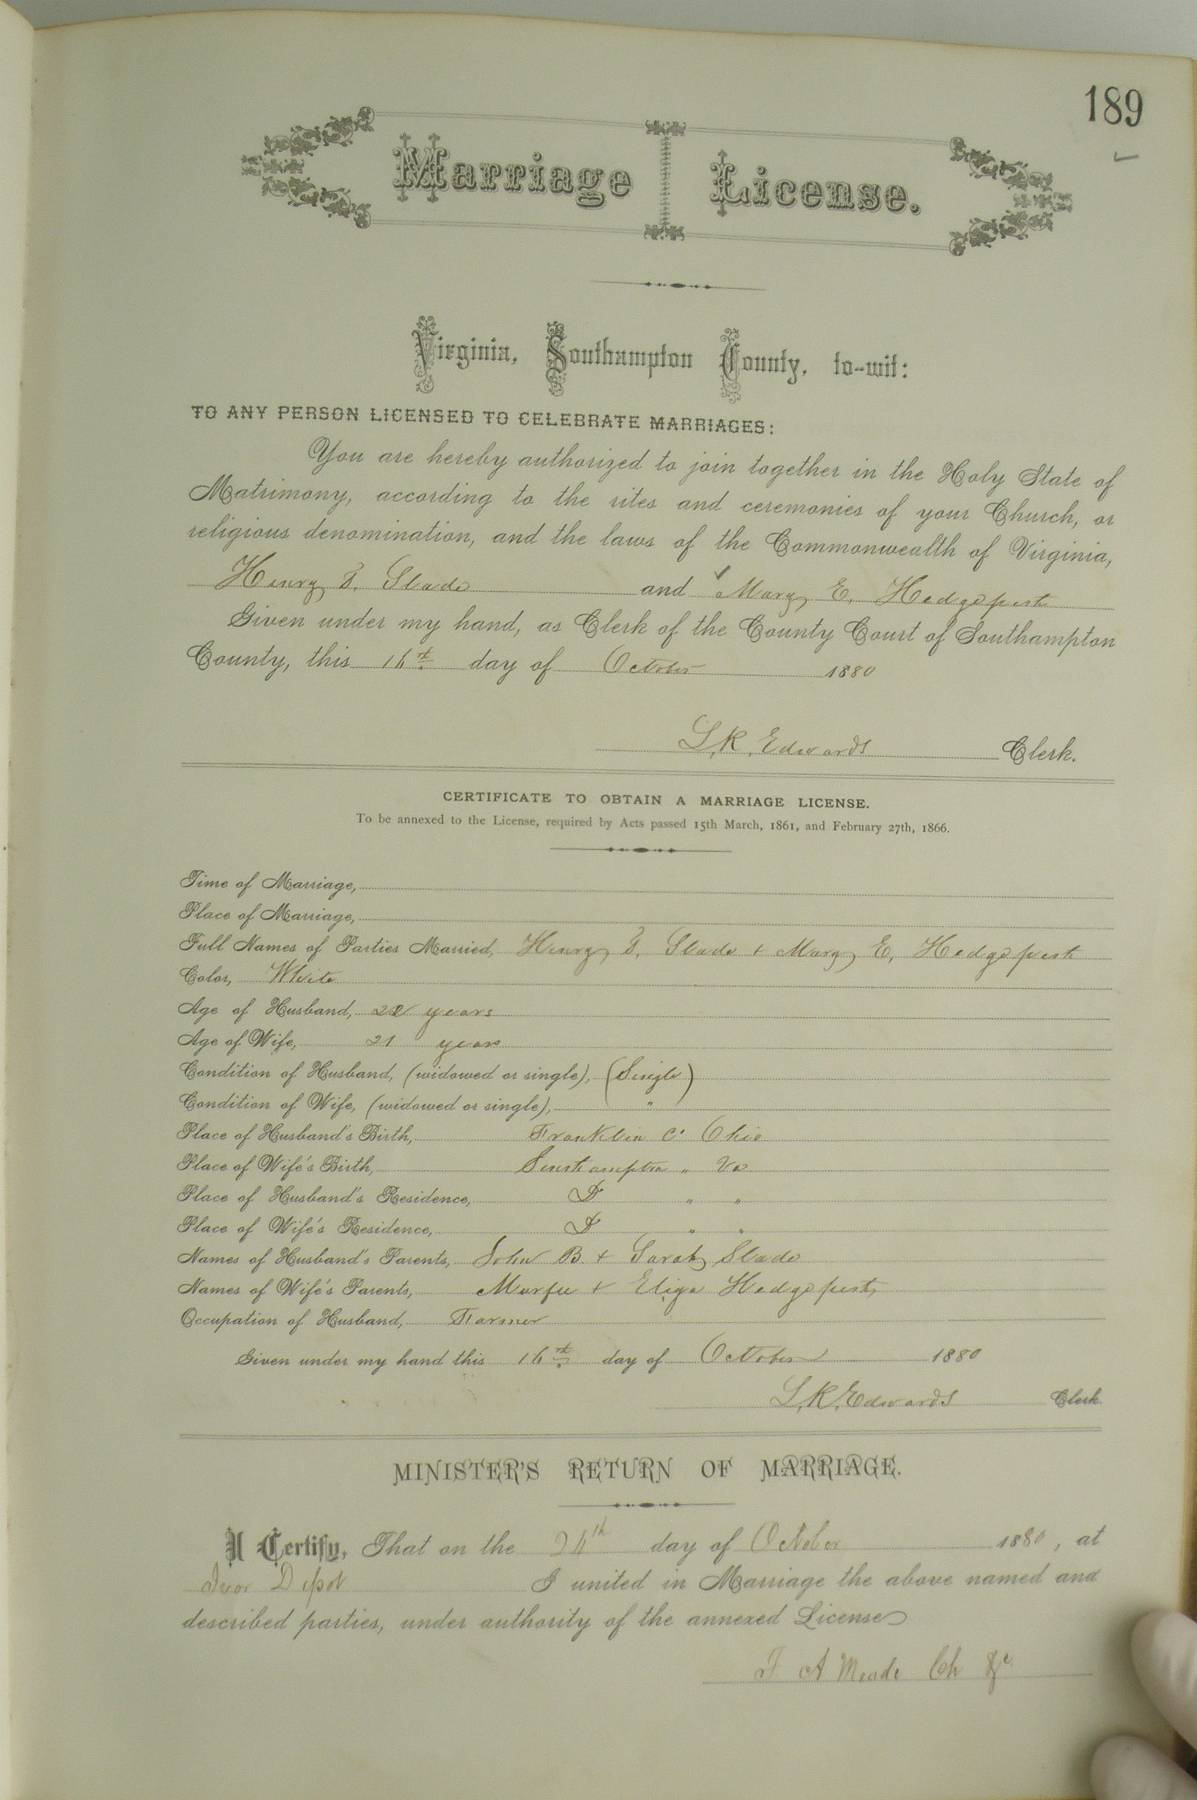 189
Marriage License.
Virginia, Southampton County, to-wit:
TO ANY PERSON LICENSED TO CELEBRATE MARRIAGES:
You are hereby authorized to join together in the Holy State of
Matrimony, according to the rites and ceremonies of your Church, or
religious denomination, and the laws of the Commonwealth of Virginia,
Henry Slade and Mary E. Hedgepeth
Given under my hand, as Clerk of the County Court of Southampton
County, this 16th day of October 1880
L. R. Edwards Clerk.
CERTIFICATE TO OBTAIN A MARRIAGE LICENSE.
To be annexed to the License, required by Acts passed 15th March, 1861, and February 27th, 1866.
Time of Marriage,
Place of Marriage,
Full Names of Parties Married, Henry Slade + Mary E. Hedgepeth
Color, White
Age of Husband, years
Age of Wife, 21 years
Condition of Husband, (widowed or single), (Single)
Condition of Wife, (widowed or single), "
Place of Husband's Birth, Franklin Co Ohio
Place of Wife's Birth, Southampton " Va
Place of Husband's Residence, Do " "
Place of Wife's Residence, Do " "
Names of Husband's Parents, John B. + Sarah Slade
Names of Wife's Parents, + Eliza Hedgepeth
Occupation of Husband, Farmer
Given under my hand this 16th day of October 1880
L. R. Edwards Clerk.
MINISTER'S RETURN OF MARRIAGE.
I Certify, That on the 24th day of October 1880, at
Ivor Depot I united in Marriage the above named and
described parties, under authority of the annexed License
A Meade